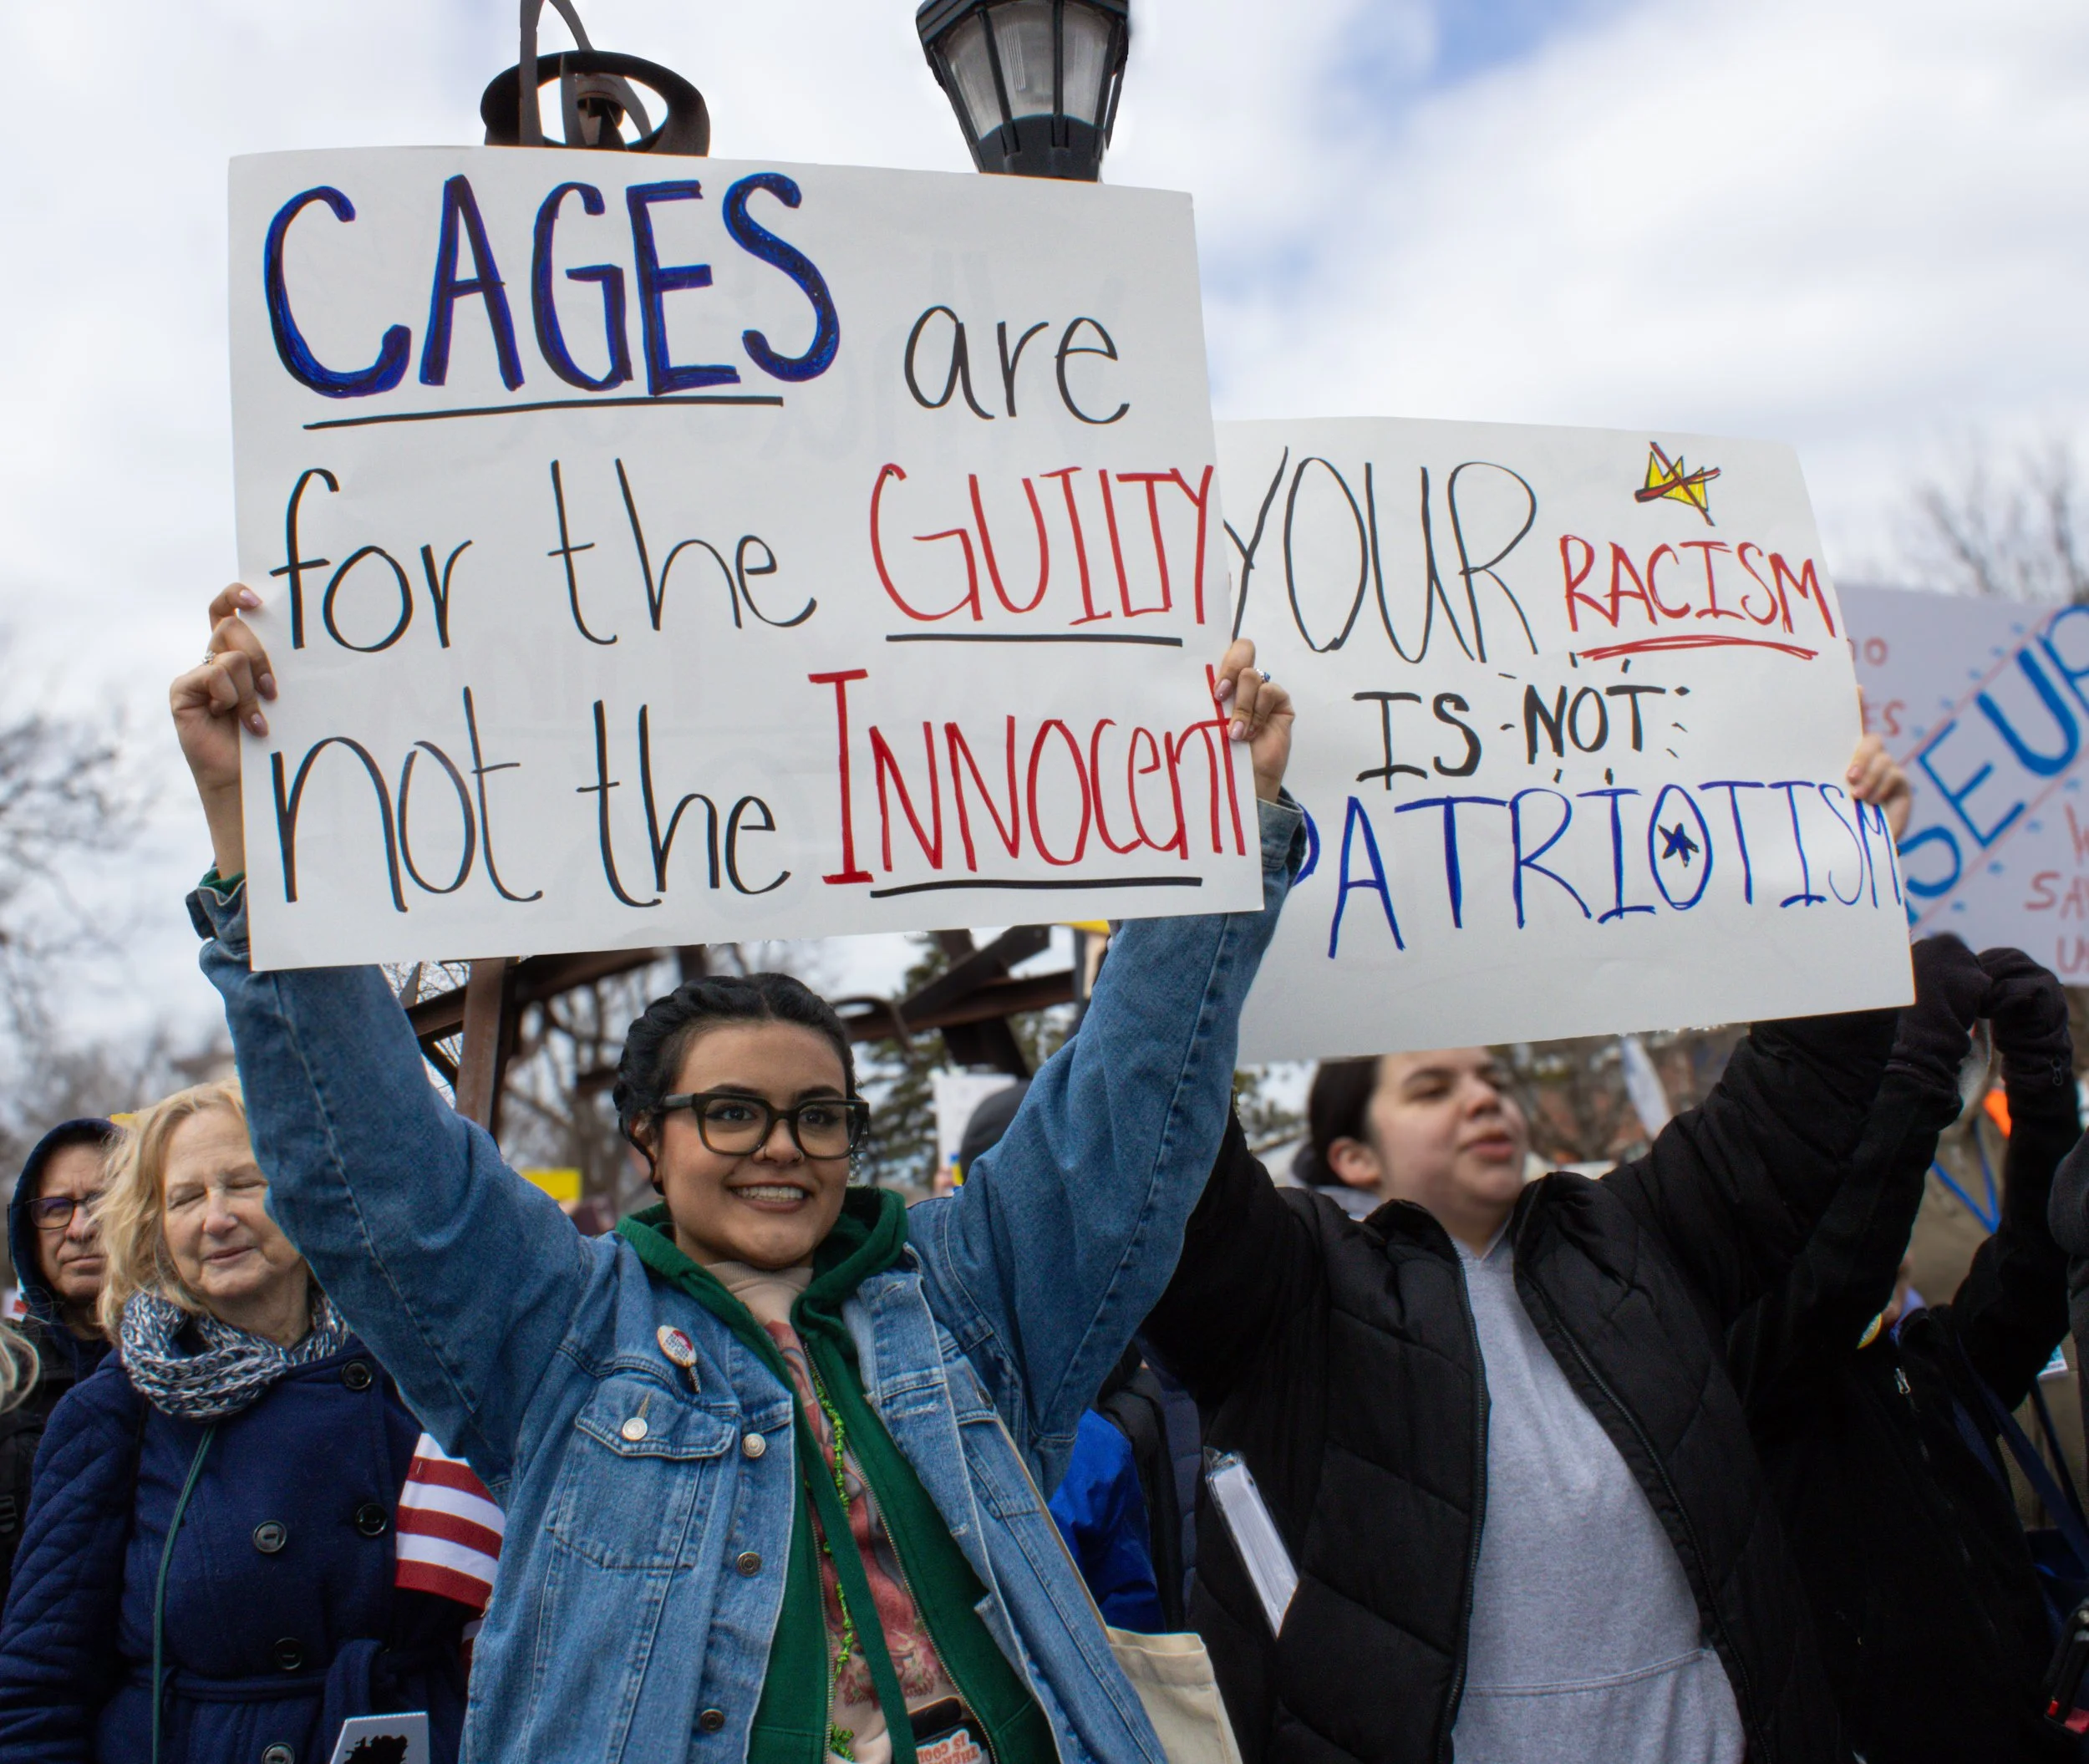 CAGES are
for the GUILTY
not the INNOCENT
YOUR RACISM
IS NOT
PATRIOTISM